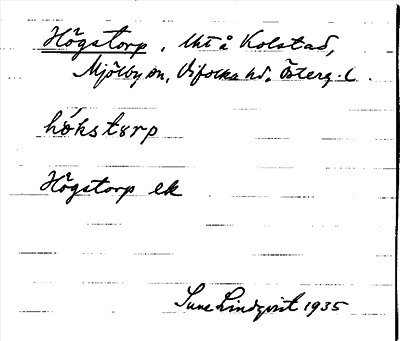 Högstorp, uti å Kolstad,
Mjölby sn, Vifolka hd. Österg. l.
hö́kstɞrp
Högstorp ek
Sune Lindqvist 1935